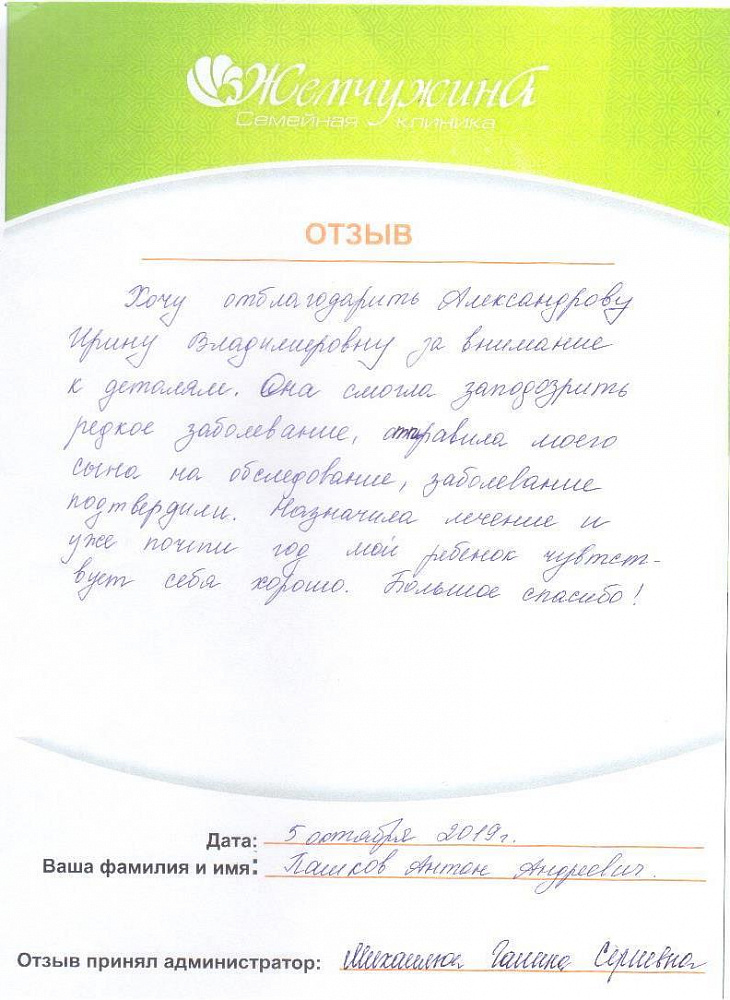 Жемчужина
Семейная клиника
ОТЗЫВ
Хочу отблагодарить Александрову
Ирину Владимировну за внимание
к деталям. Она смогла заподозрить
редкое заболевание, отправила моего
сына на обследование, заболевание
подтвердили. Назначила лечение и
уже почти год мой ребенок чувтст-
вует себя хорошо. Большое спасибо!
Дата: 5 октября 2019г.
Ваша фамилия и имя: Пашков Антон Андреевич.
Отзыв принял администратор: Галина